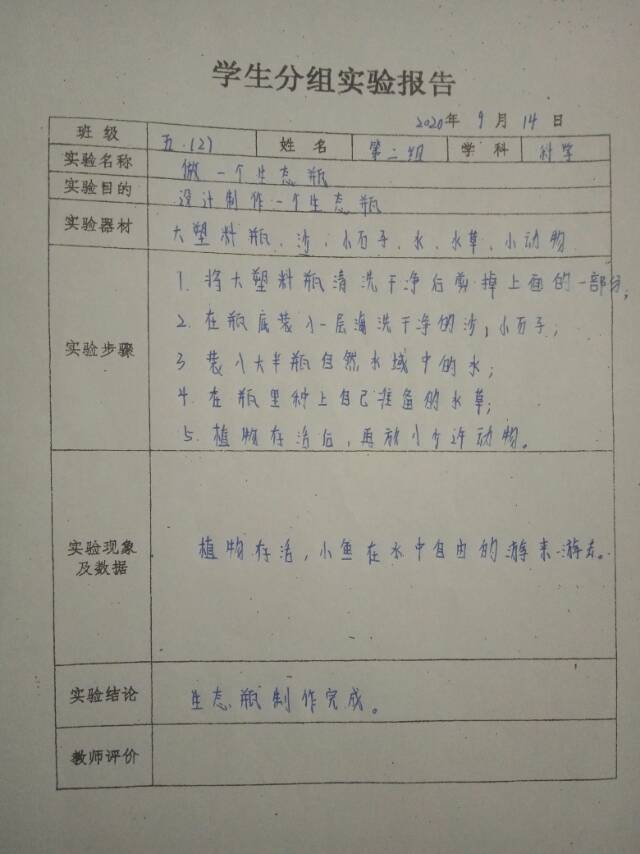 学生分组实验报告
2020年 9月 14日
班级 五.(2) 姓名 第二组 学科 科学
实验名称 做一个生态瓶
实验目的 设计制作一个生态瓶
实验器材 大塑料瓶、沙、小石子、水、水草、小动物
实验步骤
1. 将大塑料瓶清洗干净后剪掉上面的一部分;
2. 在瓶底装入一层淘洗干净的沙,小石子;
3 装入大半瓶自然水域中的水;
4. 在瓶里种上自己准备的水草;
5. 植物存活后,再放入少许动物。
实验现象及数据
植物存活,小鱼在水中自由的游来游去。
实验结论 生态瓶制作完成。
教师评价